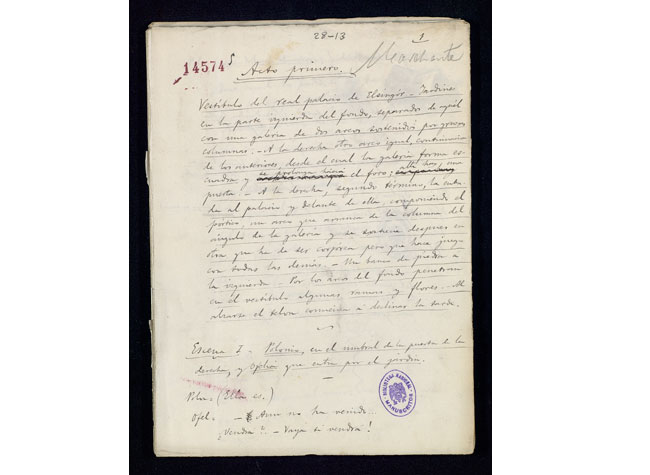 28-13
1
14574
Acto primero.
Vestíbulo del real palacio de Elsingór. - Jardines
en la parte izquierda del fondo, separados de aquél
con una galería de dos arcos sostenidos por gruesas
columnas. - A la derecha otro arco igual, continuación
de los anteriores, desde el cual la galería forma es-
cuadra y se prolonga hacia el foro; allí hay una
puerta. - A la derecha, segundo término, la entra-
da al palacio, y delante de ella, componiendo el
pórtico, un arco que arranca de la columna del
ángulo de la galería y se sostiene después en
otra que ha de ser corpórea pero que hace juego
con todas las demás. - Un banco de piedra a
la izquierda. - Por los arcos del fondo penetran
en el vestíbulo algunas ramas y flores. - Al
alzarse el telón comienza a declinar la tarde.
Escena I - Polonio, en el umbral de la puerta de la
derecha, y Ofelia que entra por el jardín.
Polo. (Ella es.)
Ofel. - Aun no ha venido...
¿Vendrá? - Vaya si vendrá!
BIBLIOTECA NACIONAL
MANUSCRITOS